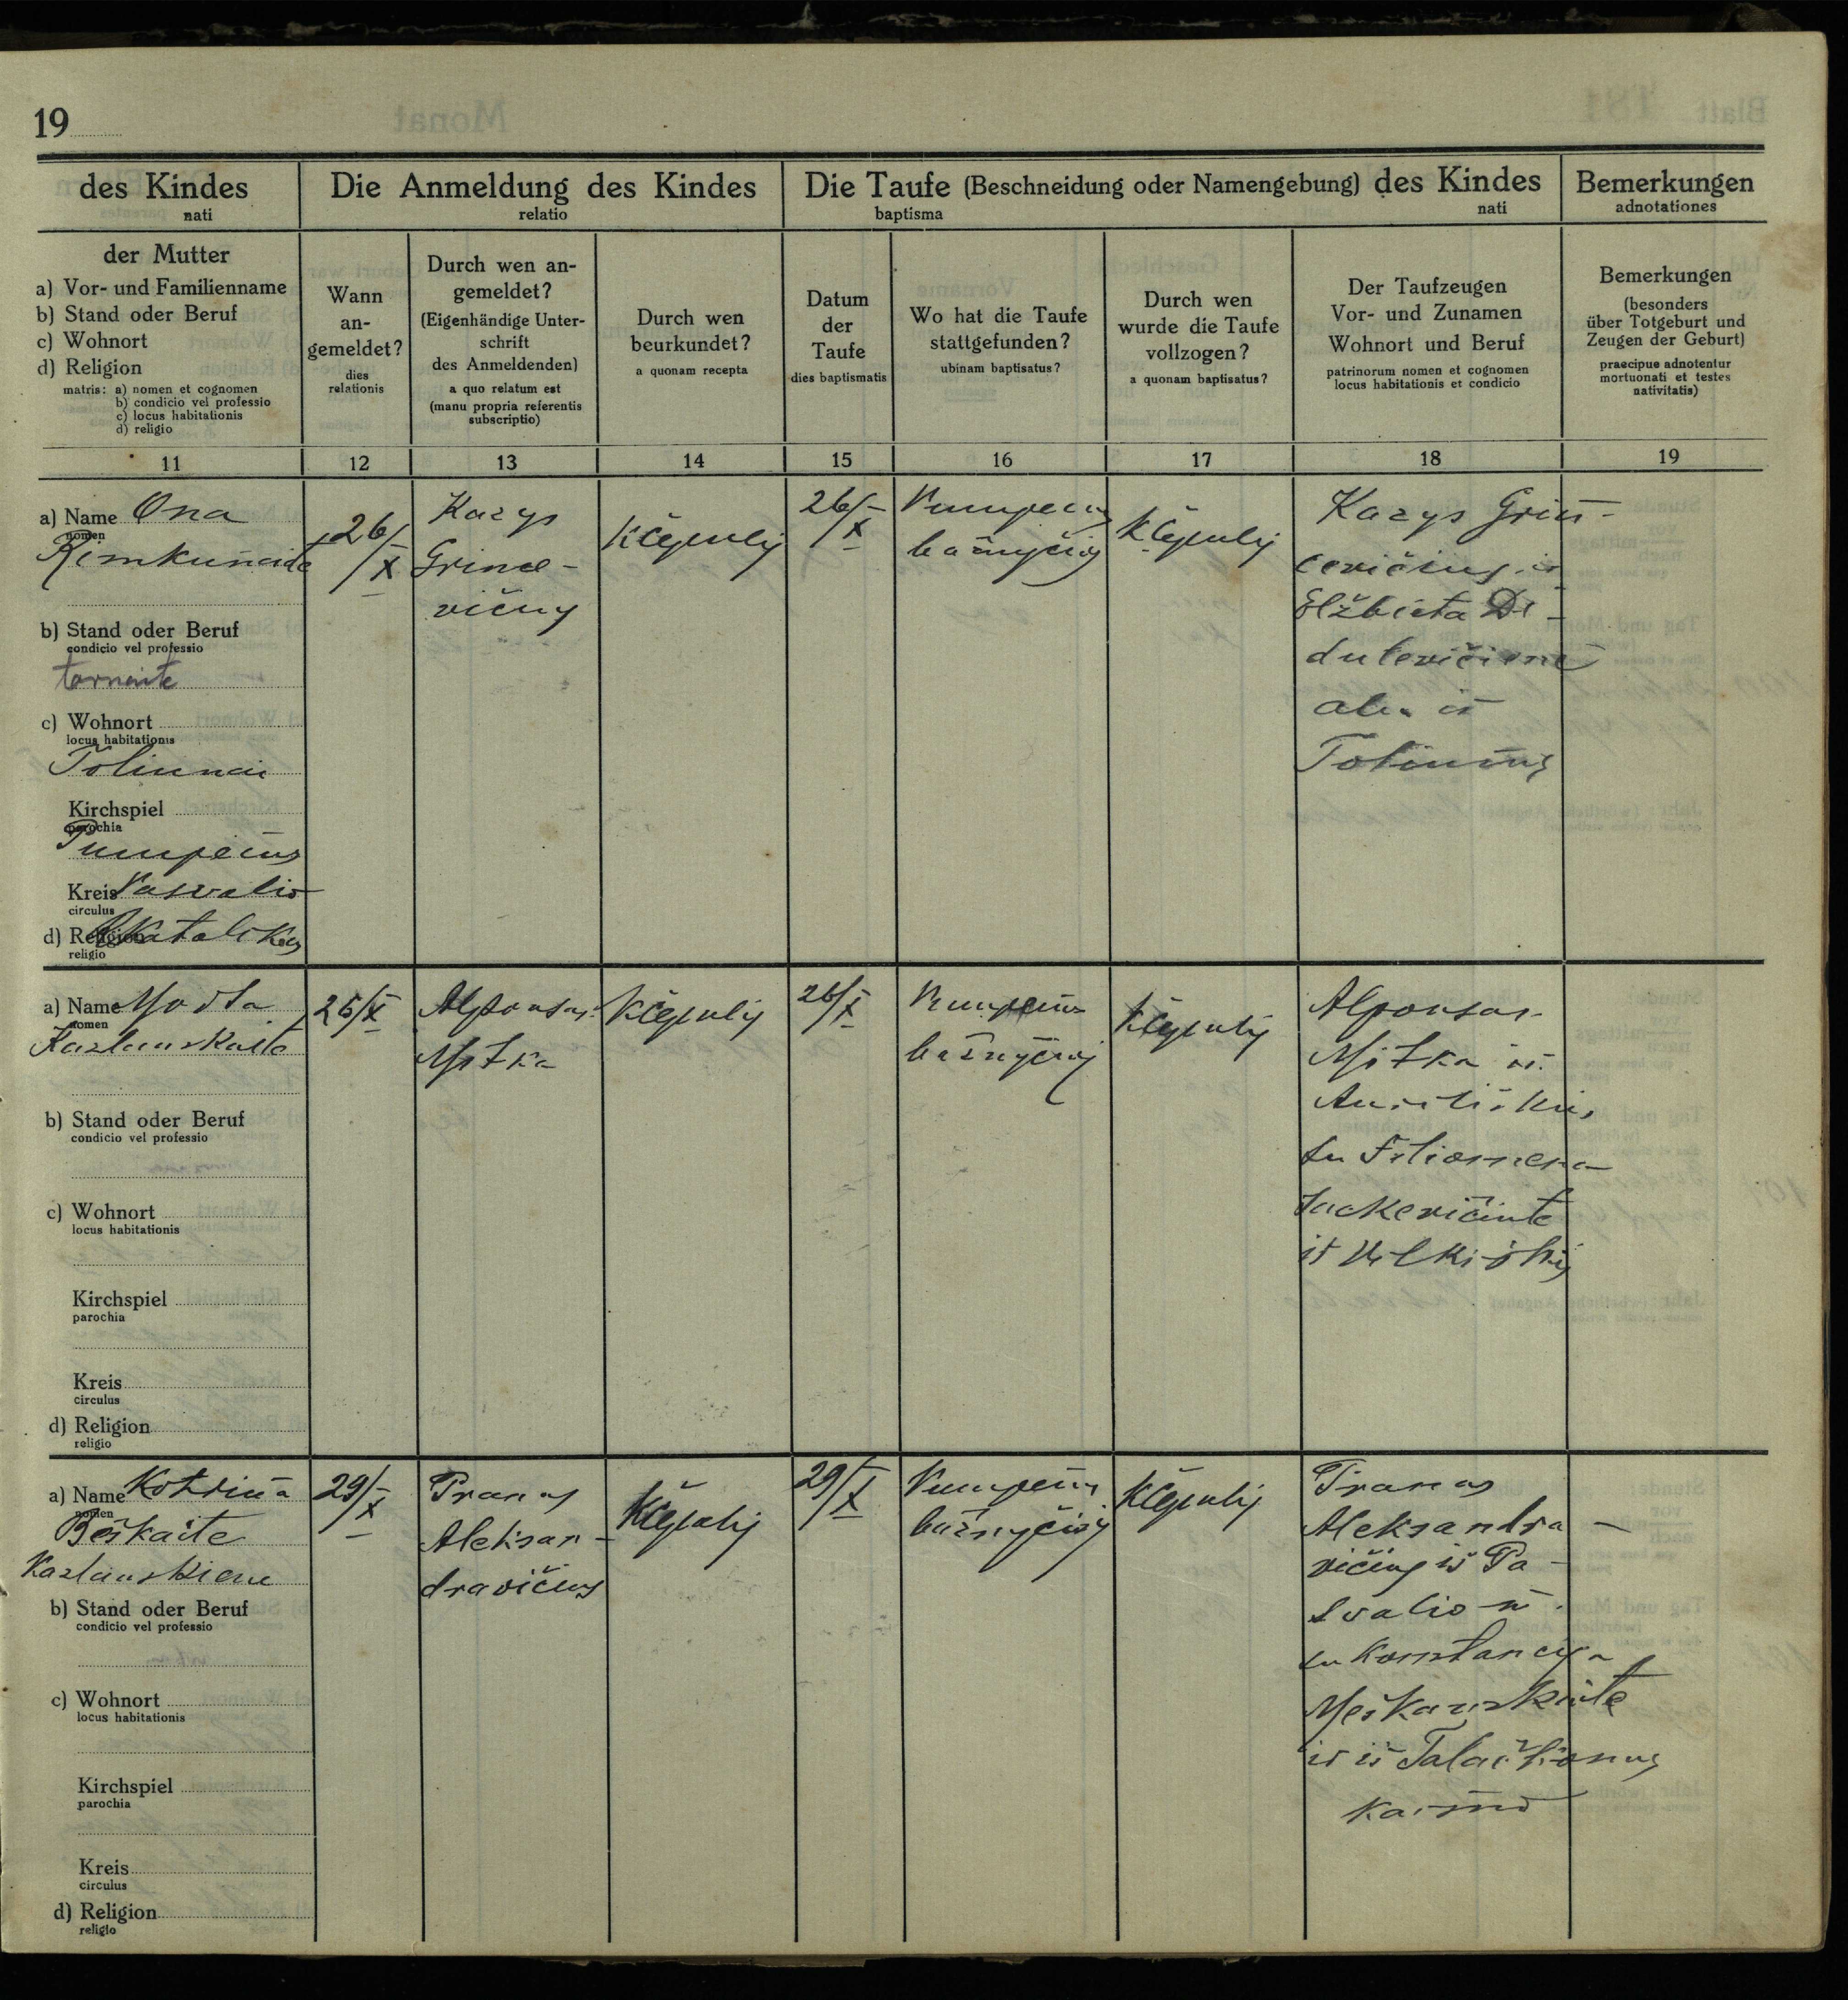 19
des Kindes
nati
Die Anmeldung des Kindes
relatio
Die Taufe (Beschneidung oder Namengebung) des Kindes
baptisma nati
Bemerkungen
adnotationes
der Mutter
a) Vor- und Familienname
b) Stand oder Beruf
c) Wohnort
d) Religion
matris: a) nomen et cognomen
b) condicio vel professio
c) locus habitationis
d) religio
Wann
an-
gemeldet?
dies
relationis
Durch wen an-
gemeldet?
(Eigenhändige Unter-
schrift
des Anmeldenden)
a quo relatum est
(manu propria referentis
subscriptio)
Durch wen
beurkundet?
a quonam recepta
Datum
der
Taufe
dies baptismatis
Wo hat die Taufe
stattgefunden?
ubinam baptisatus?
Durch wen
wurde die Taufe
vollzogen?
a quonam baptisatus?
Der Taufzeugen
Vor- und Zunamen
Wohnort und Beruf
patrinorum nomen et cognomen
locus habitationis et condicio
Bemerkungen
(besonders
über Totgeburt und
Zeugen der Geburt)
praecipue adnotentur
mortuonati et testes
nativitatis)
11 12 13 14 15 16 17 18 19
a) Name Ona
nomen
Rimkunaite
b) Stand oder Beruf
condicio vel professio
tarnaite
c) Wohnort
locus habitationis
Toliunai
Kirchspiel
parochia
Pumpėnų
Kreis Pasvalio
circulus
d) Religion Katalikų
religio
26/X
Kazys
Grince-
vičius
26/X
Pumpėnų
bažnyčioj
Kazys Grin-
cevičius ir
Elžbieta Di-
dulevičienė
abu iš
Toliunų
a) Name
nomen
Kazlauskaitė
b) Stand oder Beruf
condicio vel professio
c) Wohnort
locus habitationis
Kirchspiel
parochia
Kreis
circulus
d) Religion
religio
26/X
Alponsas
Mitka
26/X
Pumpėnų
bažnyčioj
Alponsas
Mitka iš
su Filiomena
Jackevičiute
iš
a) Name Kotrina
nomen
Beškaitė
Kazlauskiene
b) Stand oder Beruf
condicio vel professio
c) Wohnort
locus habitationis
Kirchspiel
parochia
Kreis
circulus
d) Religion
religio
29/X
Pranas
Aleksan-
dravičius
29/X
Pumpėnų
bažnyčioj
Pranas
Aleksandra-
vičius iš Pa-
svalio m.
su Konstancija
Meškauskaite
ir iš Talačkonių
kaimo